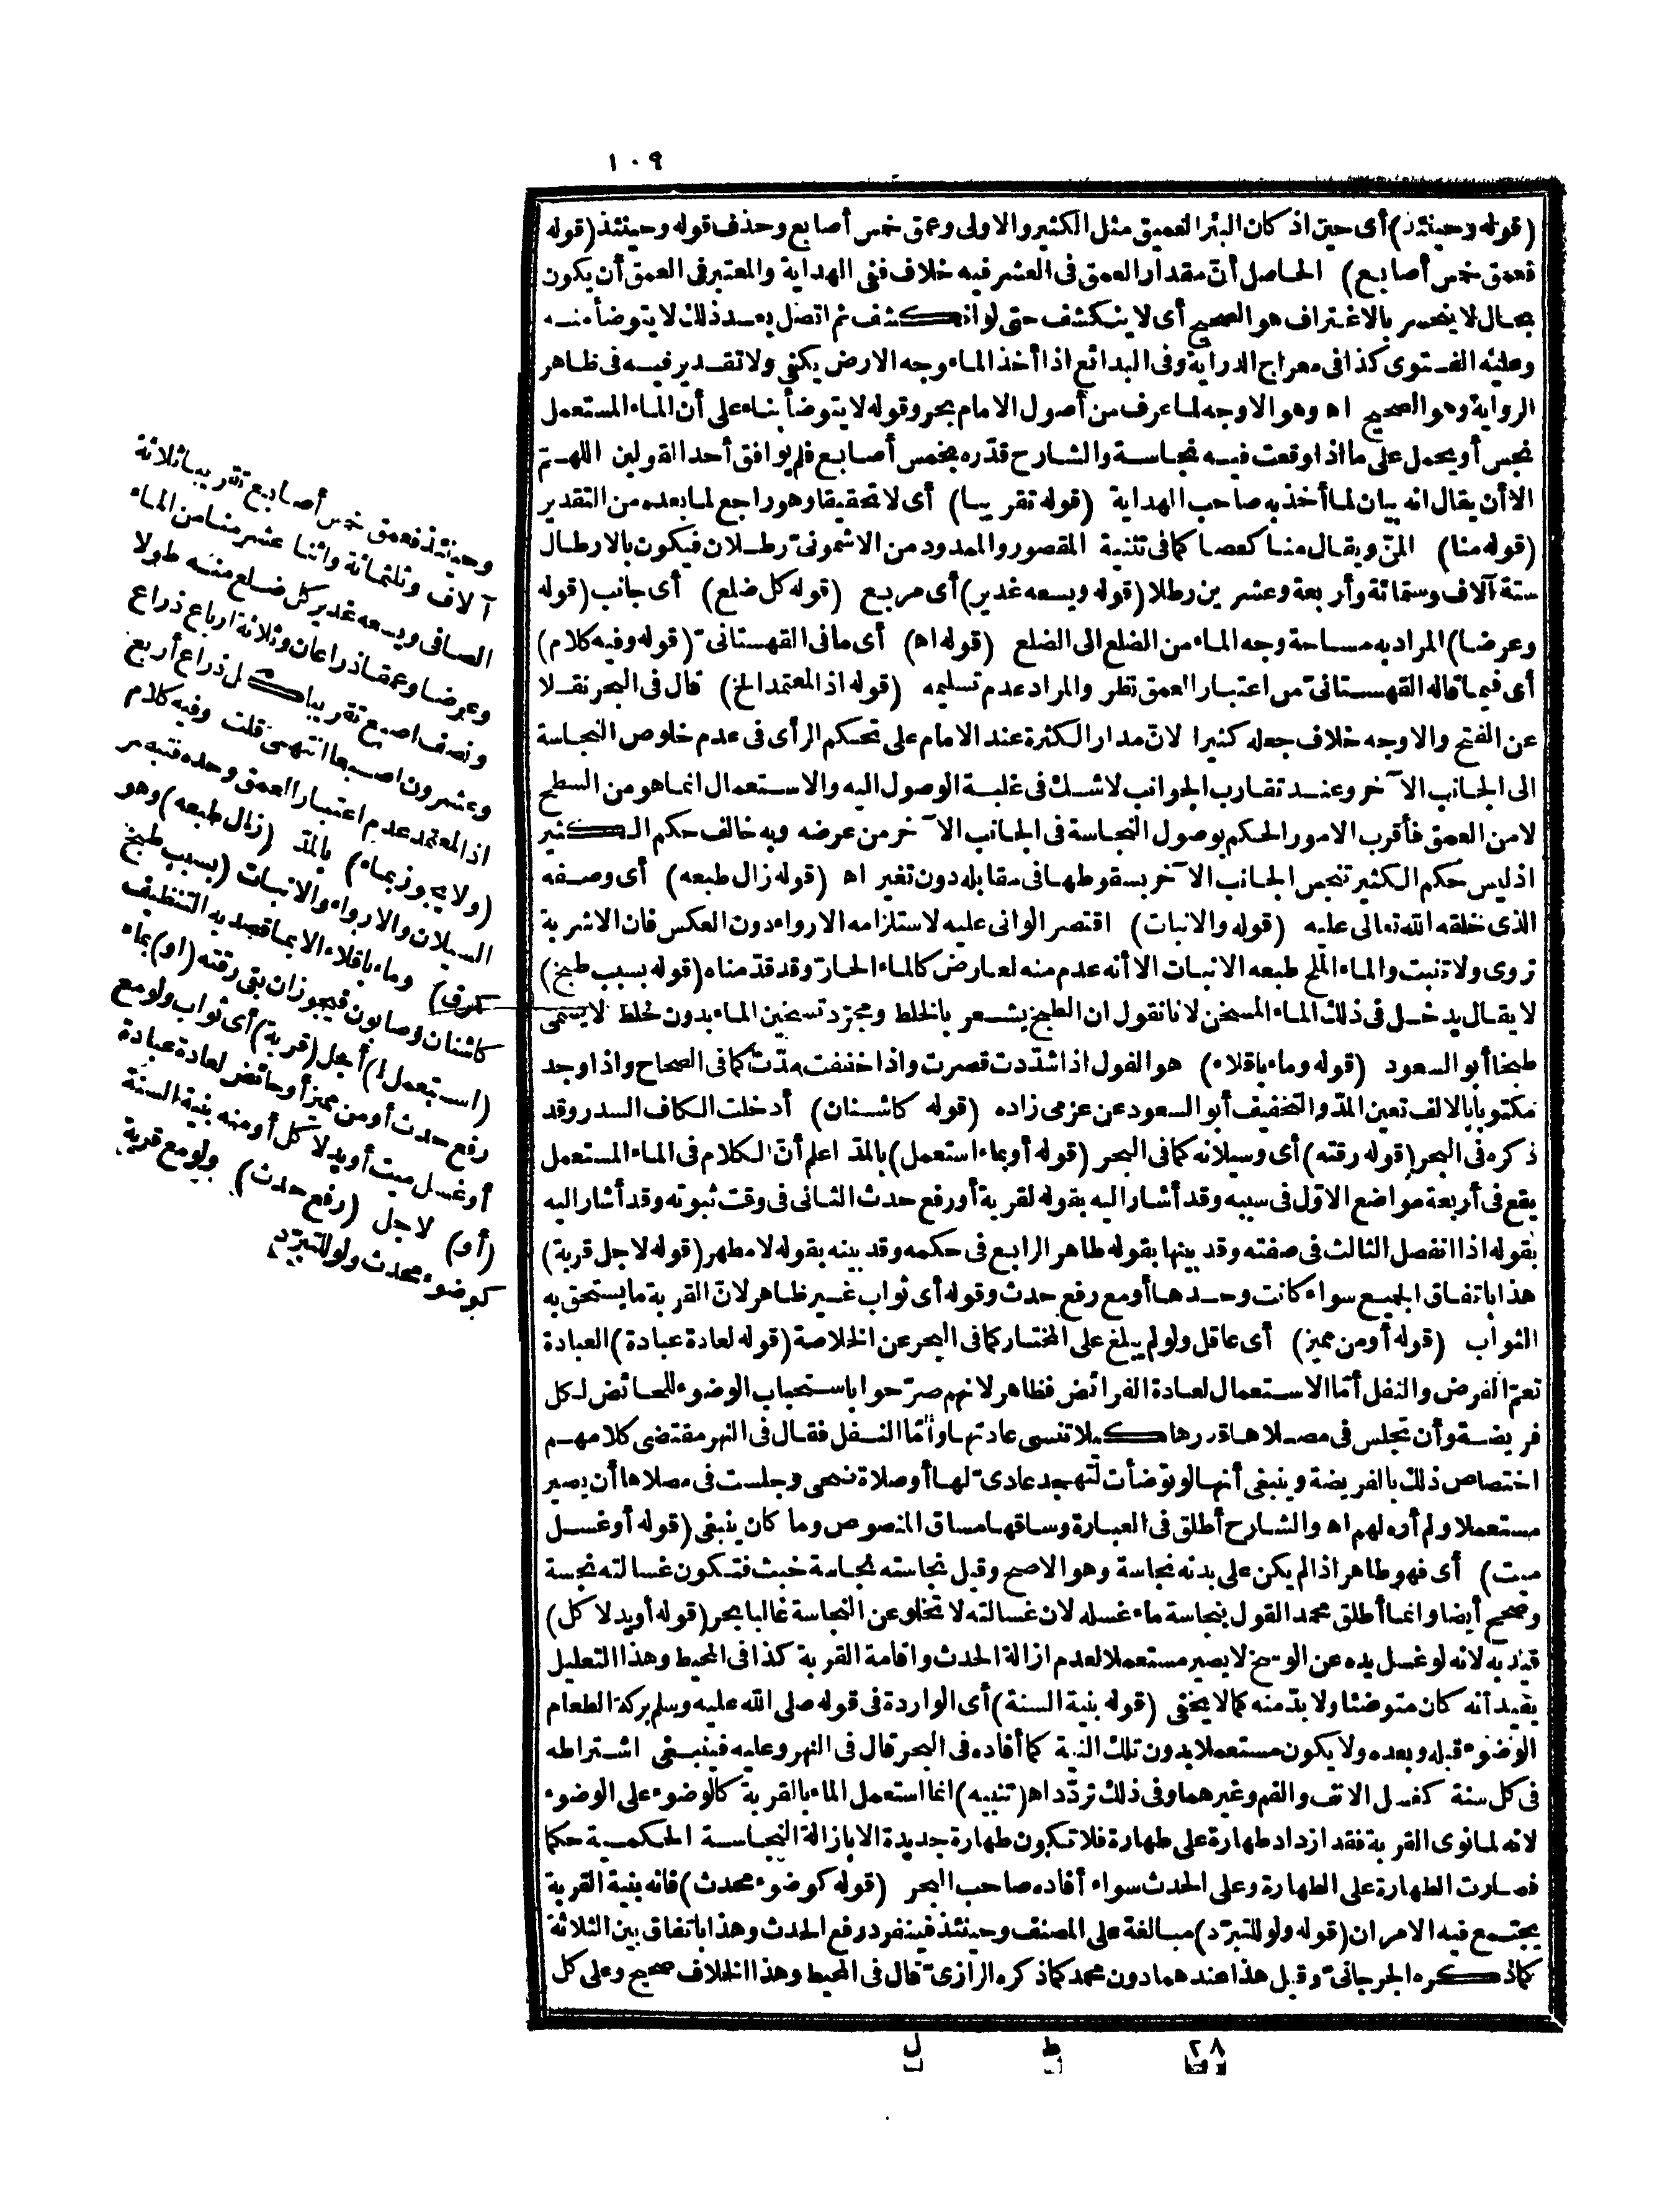 ١٠٩
(قوله وحينئذ) أى حين اذ كان البئر العميق مثل الكثير والاولى وعمق خمس أصابع وحذف قوله وحينئذ (قوله
فعمق خمس أصابع) الحاصل أنّ مقدار العمق فى العشر فيه خلاف ففى الهداية والمعتبر فى العمق أن يكون
بحال لا ينحسر بالاغتراف هو الصحيح أى لا ينكشف حتى لو انكشف ثم اتصل بعد ذلك لا يتوضأ منه
وعليه الفتوى كذا فى معراج الدراية وفى البدائع اذا أخذ الماء وجه الارض يكفى ولا تقدير فيه فى ظاهر
الرواية وهو الصحيح اه وهو الاوجه لما عرف من أصول الامام بحر وقوله لا يتوضأ بناء على أن الماء المستعمل
نجس أو يحمل على ما اذا وقعت فيه نجاسة والشارح قدّره بخمس أصابع فلم يوافق أحد القولين اللهمّ
الا أن يقال انه بيان لما أخذ به صاحب الهداية (قوله تقريبا) أى لا تحقيقا وهو راجع لما بعده من التقدير
(قوله منا) المنّ ويقال منا كعصا كما فى تثنية المقصور والممدود من الاشمونىّ رطلان فيكون بالارطال
ستة آلاف وستمائة وأربعة وعشرين رطلا (قوله ويسعه غدير) أى مربع (قوله كل ضلع) أى جانب (قوله
وعرضا) المراد به مساحة وجه الماء من الضلع الى الضلع (قوله اه) أى ما فى القهستانىّ (قوله وفيه كلام)
أى فيما قاله القهستانىّ من اعتبار العمق نظر والمراد عدم تسليمه (قوله اذ المعتمد الخ) قال فى البحر نقلا
عن الفتح والاوجه خلاف جعله كثيرا لانّ مدار الكثرة عند الامام على تحكم الرأى فى عدم خلوص النجاسة
الى الجانب الآخر وعند تقارب الجوانب لا شك فى غلبة الوصول اليه والاستعمال انما هو من السطح
لا من العمق فأقرب الامور الحكم بوصول النجاسة فى الجانب الآخر من عرضه وبه خالف حكم الكثير
اذ ليس حكم الكثير تنجس الجانب الآخر بسقوطها فى مقابله دون تغير اه (قوله زال طبعه) أى وصفه
الذى خلقه الله تعالى عليه (قوله والانبات) اقتصر الوانى عليه لاستلزامه الارواء دون العكس فان الاشربة
تروى ولا تنبت والماء الملح طبعه الانبات الا أنه عدم منه لعارض كالماء الحارّ وقد قدّمناه (قوله بسبب طبخ)
لا يقال يدخل فى ذلك الماء المسخن لانا نقول ان الطبخ يشعر بالخلط ومجرّد تسخين الماء بدون خلط لا يسمى
طبخا أبو السعود (قوله وماء باقلاء) هو الفول اذا شدّدت قصرت واذا خففت مدّت كما فى الصحاح واذا وجد
مكتوبا بالالف تعين المدّ والتخفيف أبو السعود عن عزمى زاده (قوله كاشنان) أدخلت الكاف السدر وقد
ذكره فى البحر (قوله رقته) أى وسيلانه كما فى البحر (قوله أو بماء استعمل) بالمدّ اعلم أنّ الكلام فى الماء المستعمل
يقع فى أربعة مواضع الاوّل فى سببه وقد أشار اليه بقوله لقربة أو رفع حدث الثانى فى وقت ثبوته وقد أشار اليه
بقوله اذا انفصل الثالث فى صفته وقد بينها بقوله طاهر الرابع فى حكمه وقد بينه بقوله لا مطهر (قوله لاجل قربة)
هذا باتفاق الجميع سواء كانت وحدها أو مع رفع حدث وقوله أى ثواب غير ظاهر لانّ القربة ما يستحق به
الثواب (قوله أو من مميز) أى عاقل ولو لم يبلغ على المختار كما فى البحر عن الخلاصة (قوله لعادة عبادة) العبادة
تعمّ الفرض والنفل أمّا الاستعمال لعبادة الفرائض فظاهر لانهم صرّحوا باستحباب الوضوء للحائض لكل
فريضة وأن تجلس فى مصلاها قدرها كيلا تنسى عادتها وأمّا النفل فقال فى النهر مقتضى كلامهم
اختصاص ذلك بالفريضة وينبغى أنها لو توضأت لتهجد عادىّ لها أو صلاة ضحى وجلست فى مصلاها أن يصير
مستعملا ولم أره لهم اه والشارح أطلق فى العبارة وساقها مساق المنصوص وما كان ينبغى (قوله أو غسل
ميت) أى فهو طاهر اذا لم يكن على بدنه نجاسة وهو الاصح وقيل نجاسته نجاسة خبث فتكون غسالته نجسة
وصحح أيضا وانما أطلق محمد القول بنجاسة ماء غسله لان غسالته لا تخلو عن النجاسة غالبا بحر (قوله أو يد لاكل)
قيد به لانه لو غسل يده عن الوسخ لا يصير مستعملا لعدم ازالة الحدث واقامة القربة كذا فى المحيط وهذا التعليل
يفيد أنه كان متوضئا ولا بدّ منه كما لا يخفى (قوله بنية السنة) أى الواردة فى قوله صلى الله عليه وسلم بركة الطعام
الوضوء قبله وبعده ولا يكون مستعملا بدون تلك النية كما أفاده فى البحر قال فى النهر وعليه فينبغى اشتراطه
فى كل سنة كغسل الانف والفم وغيرهما وفى ذلك تردّد اه (تنبيه) انما استعمل الماء بالقربة كالوضوء على الوضوء
لانه لما نوى القربة فقد ازداد طهارة على طهارة فلا تكون طهارة جديدة الا بازالة النجاسة الحكمية حكما
فصارت الطهارة على الطهارة وعلى الحدث سواء أفاده صاحب البحر (قوله كوضوء محدث) فانه بنية القربة
يجتمع فيه الامران (قوله ولو للتبرّد) مبالغة على المصنف وحينئذ فينفرد رفع الحدث وهذا باتفاق بين الثلاثة
كما ذكره الجرجانىّ وقيل هذا عندهما دون محمد كما ذكره الرازىّ قال فى المحيط وهذا الخلاف صحيح وعلى كل
وحينئذ فعمق خمس أصابع تقريبا ثلاثة
آلاف وثلثمائة واثنا عشر منا من الماء
الصافى ويسعه غدير كل ضلع منه طولا
وعرضا وعمقا ذراعان وثلاثة ارباع ذراع
ونصف اصبع تقريبا كل ذراع أربع
وعشرون اصبعا انتهى قلت وفيه كلام
اذ المعتمد عدم اعتبار العمق وحده فتبصر
(ولا يجوز بماء) بالمدّ (زال طبعه) وهو
السيلان والارواء والانبات (بسبب طبخ
كمرق) وماء باقلاء الا بما قصد به التنظيف
كاشنان وصابون فيجوز ان بقى رقته (او) بماء
(استعمل ا) أجل (قربة) أى ثواب ولو مع
رفع حدث أو من مميز أو حائض لعادة عبادة
أو غسل ميت أو يد لاكل أو منه بنية السنة
(أو) لاجل (رفع حدث) ولو مع قربة
كوضوء محدث ولو للتبرّد
٢٨ ط ل